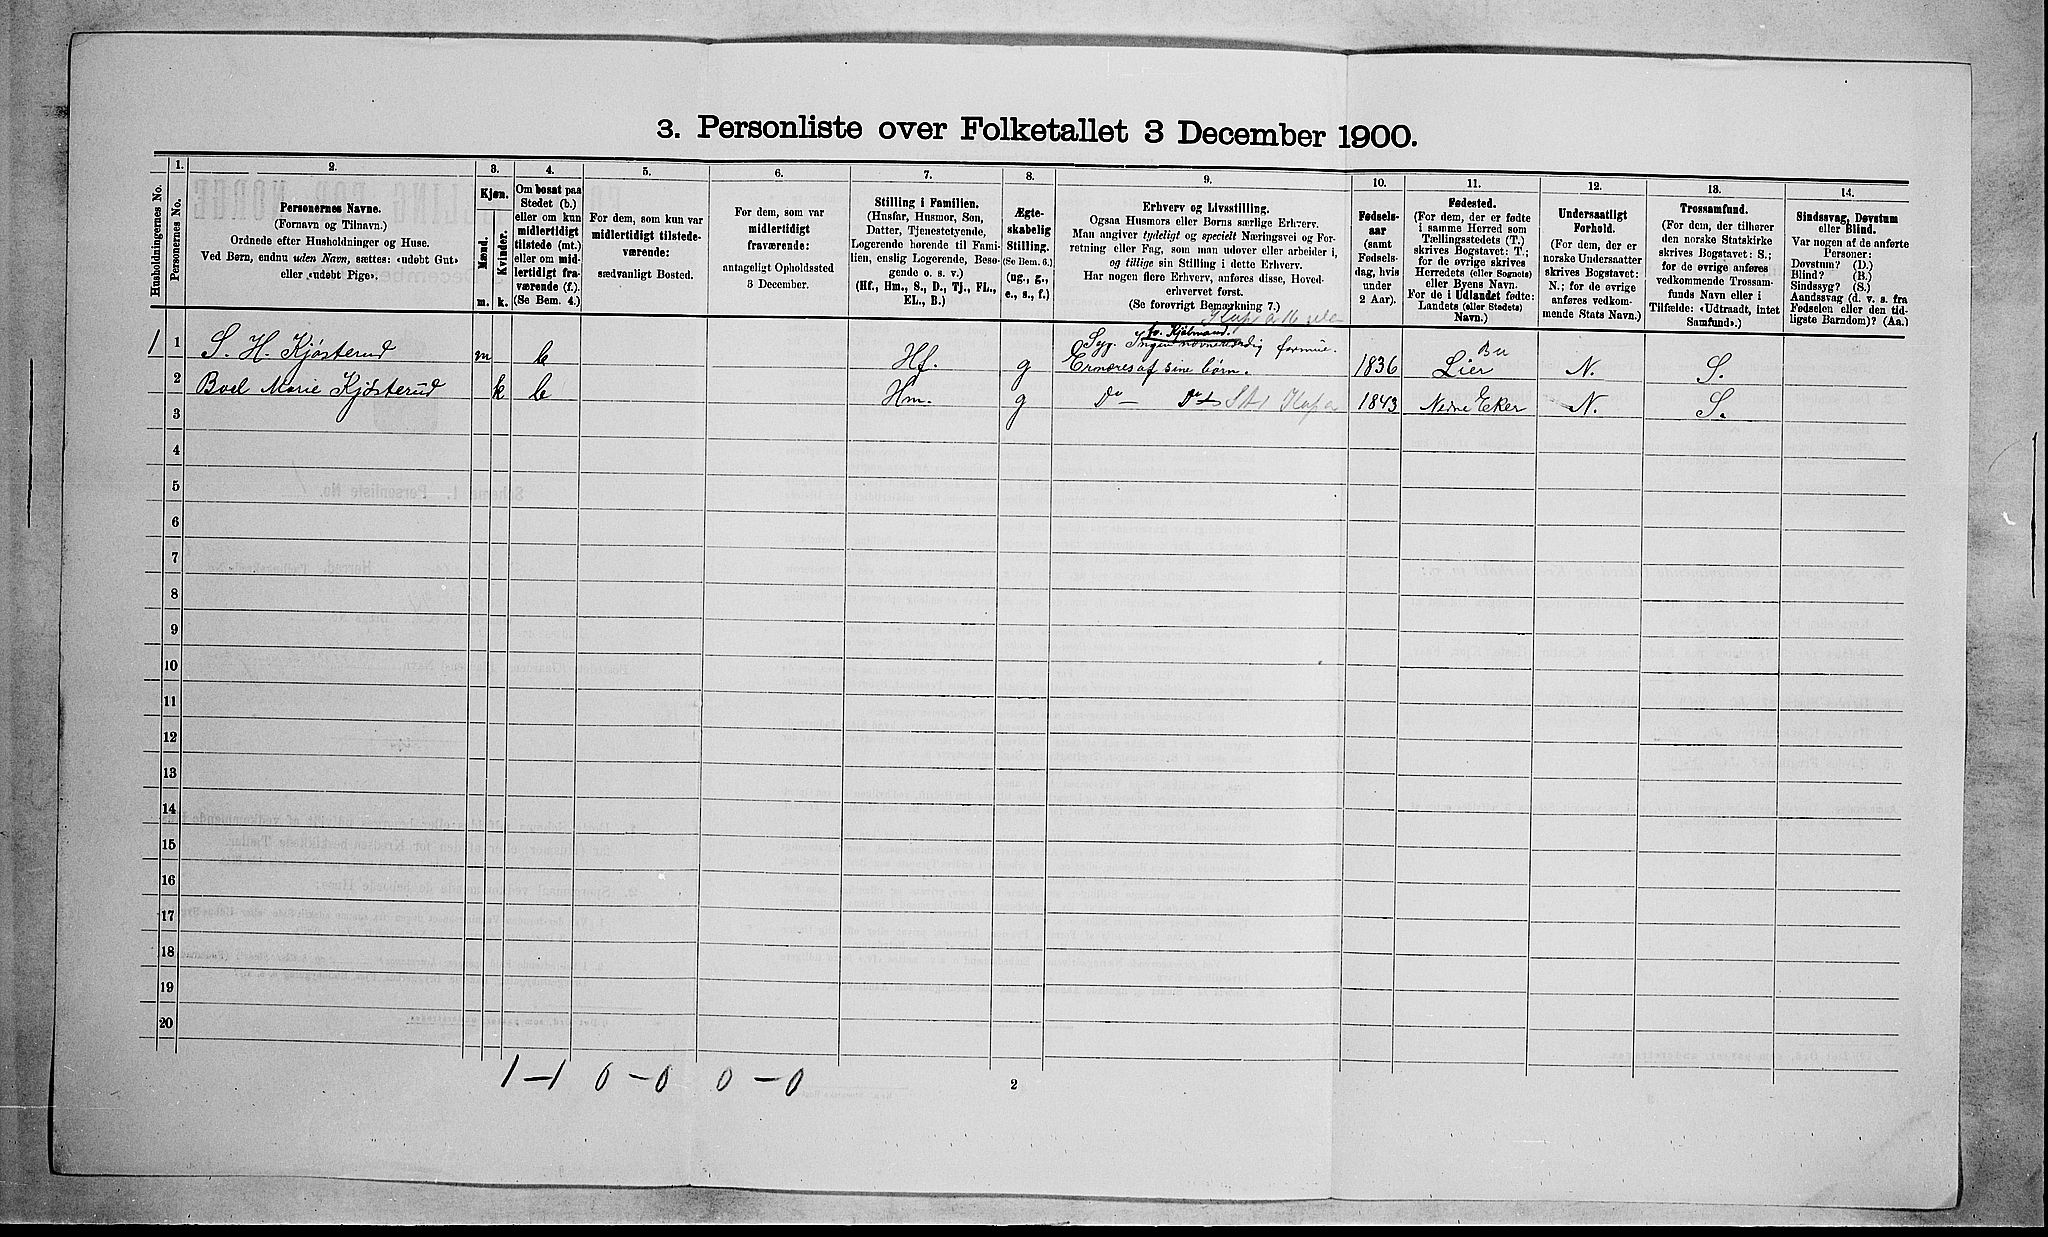 3. Personliste over Folketallet 3 December 1900.
Husholdningernes No.
1.
Personernes No.
2.
Personernes Navne.
(Fornavn og Tilnavn.)
Ordnede efter Husholdninger og Huse.
Ved Børn, endnu uden Navn, sættes: «udøbt Gut»
eller «udøbt Pige».
3.
Kjøn.
Mænd.
Kvinder.
m.
k.
4.
Om bosat paa
Stedet (b.)
eller om kun
midlertidigt
tilstede (mt.)
eller om mid-
lertidigt fra-
værende (f.).
(Se Bem. 4.)
5.
For dem, som kun var
midlertidigt tilstede-
værende:
sædvanligt Bosted.
6.
For dem, som var
midlertidigt
fraværende:
antageligt Opholdssted
3 December.
7.
Stilling i Familien.
(Husfar, Husmor, Søn,
Datter, Tjenestetyende,
Logerende hørende til Fami-
lien, enslig Logerende, Besø-
gende o. s. v.)
(Hf., Hm., S., D., Tj., FL.,
EL., B.)
8.
Ægte-
skabelig
Stilling.
(Se Bem. 6.)
(ug., g.,
e., s., f.)
9.
Erhverv og Livsstilling.
Ogsaa Husmors eller Børns særlige Erhverv.
Man angiver tydeligt og specielt Næringsvei og For-
retning eller Fag, som man udøver eller arbeider i,
og tillige sin Stilling i dette Erhverv.
Har nogen flere Erhverv, anføres disse, Hoved-
erhvervet først.
(Se forøvrigt Bemærkning 7.)
10.
Fødsels-
aar
(samt
Fødsels-
dag, hvis
under
2 Aar).
11.
Fødested.
(For dem, der er fødte
i samme Herred som
Tællingsstedets (T.)
skrives Bogstavet: T.;
for de øvrige skrives
Herredets (eller Sognets)
eller Byens Navn.
For de i Udlandet fødte:
Landets (eller Stedets)
Navn.)
12.
Undersaatligt
Forhold.
(For norske Undersaatter
skrives Bogstavet:
N.; for de øvrige
anføres vedkom-
mende Stats Navn.)
13.
Trossamfund.
(For dem, der tilhører
den norske Statskirke
skrives Bogstavet: S.;
for de øvrige anføres
vedkommende Trossam-
funds Navn eller i
Tilfælde: «Udtraadt, intet
Samfund».)
14.
Sindssvag, Døvstum
eller Blind.
Var nogen af de anførte
Personer:
Døvstum? (D.)
Blind? (B.)
Sindssyg? (S.)
Aandssvag (d. v. s. fra
Fødselen eller den tid-
ligste Barndom)? (Aa.)
fv. Kjølmand.
1 1 S. H. Kjøsterud m b Hf. g Syg. Ingen nævneværdig formue.
Ernæres af sine børn. 1836 Lier Bu N. S.
2 Boel Marie Kjøsterud k b Hm. g Do Do 1843 Nedre Eker N. S.
3
4
5
6
7
8
9
10
11
12
13
14
15
16
17
18
19
20
1 – 1 0 – 0 0 – 0
2